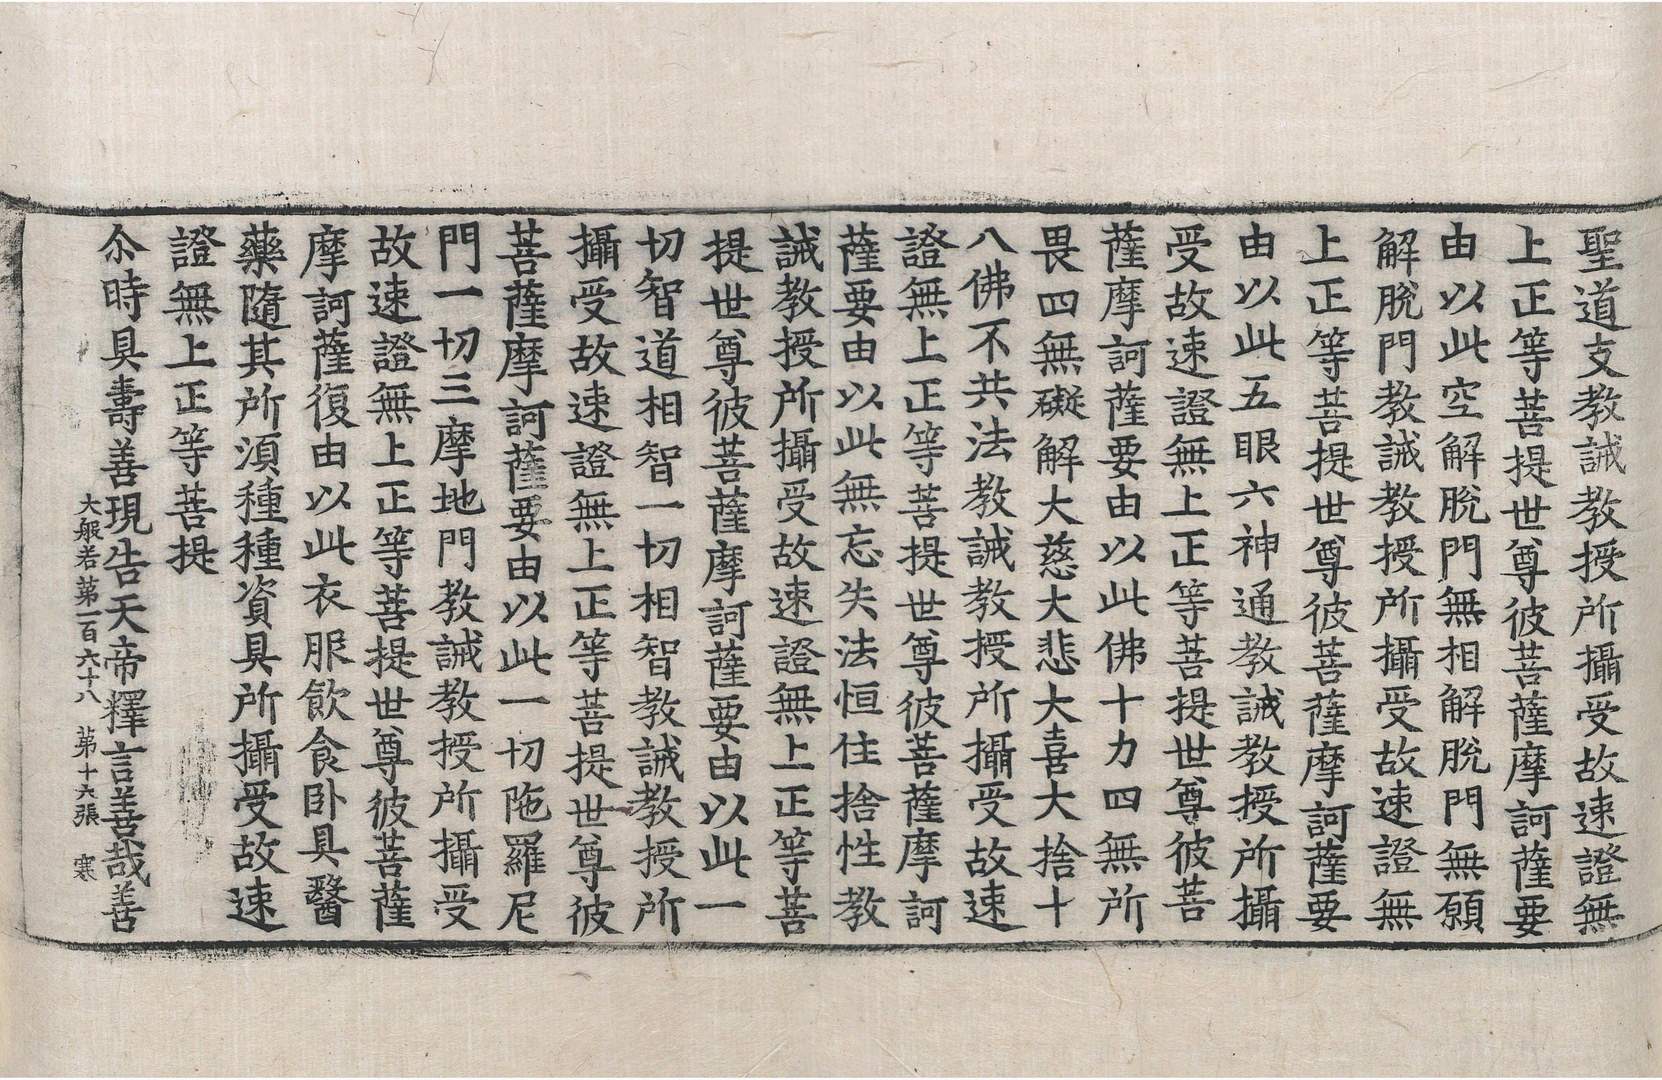 聖道支教誡教授所攝受故速證無
上正等菩提世尊彼菩薩摩訶薩要
由以此空解脫門無相解脫門無願
解脫門教誡教授所攝受故速證無
上正等菩提世尊彼菩薩摩訶薩要
由以此五眼六神通教誡教授所攝
受故速證無上正等菩提世尊彼菩
薩摩訶薩要由以此佛十力四無所
畏四無礙解大慈大悲大喜大捨十
八佛不共法教誡教授所攝受故速
證無上正等菩提世尊彼菩薩摩訶
薩要由以此無忘失法恒住捨性教
誡教授所攝受故速證無上正等菩
提世尊彼菩薩摩訶薩要由以此一
切智道相智一切相智教誡教授所
攝受故速證無上正等菩提世尊彼
菩薩摩訶薩要由以此一切陁羅尼
門一切三摩地門教誡教授所攝受
故速證無上正等菩提世尊彼菩薩
摩訶薩復由以此衣服飮食卧具醫
藥隨其所湏種種資具所攝受故速
證無上正等菩提
尒時具壽善現告天帝釋言善哉善
大般若第一百六十八 第十六張 寒